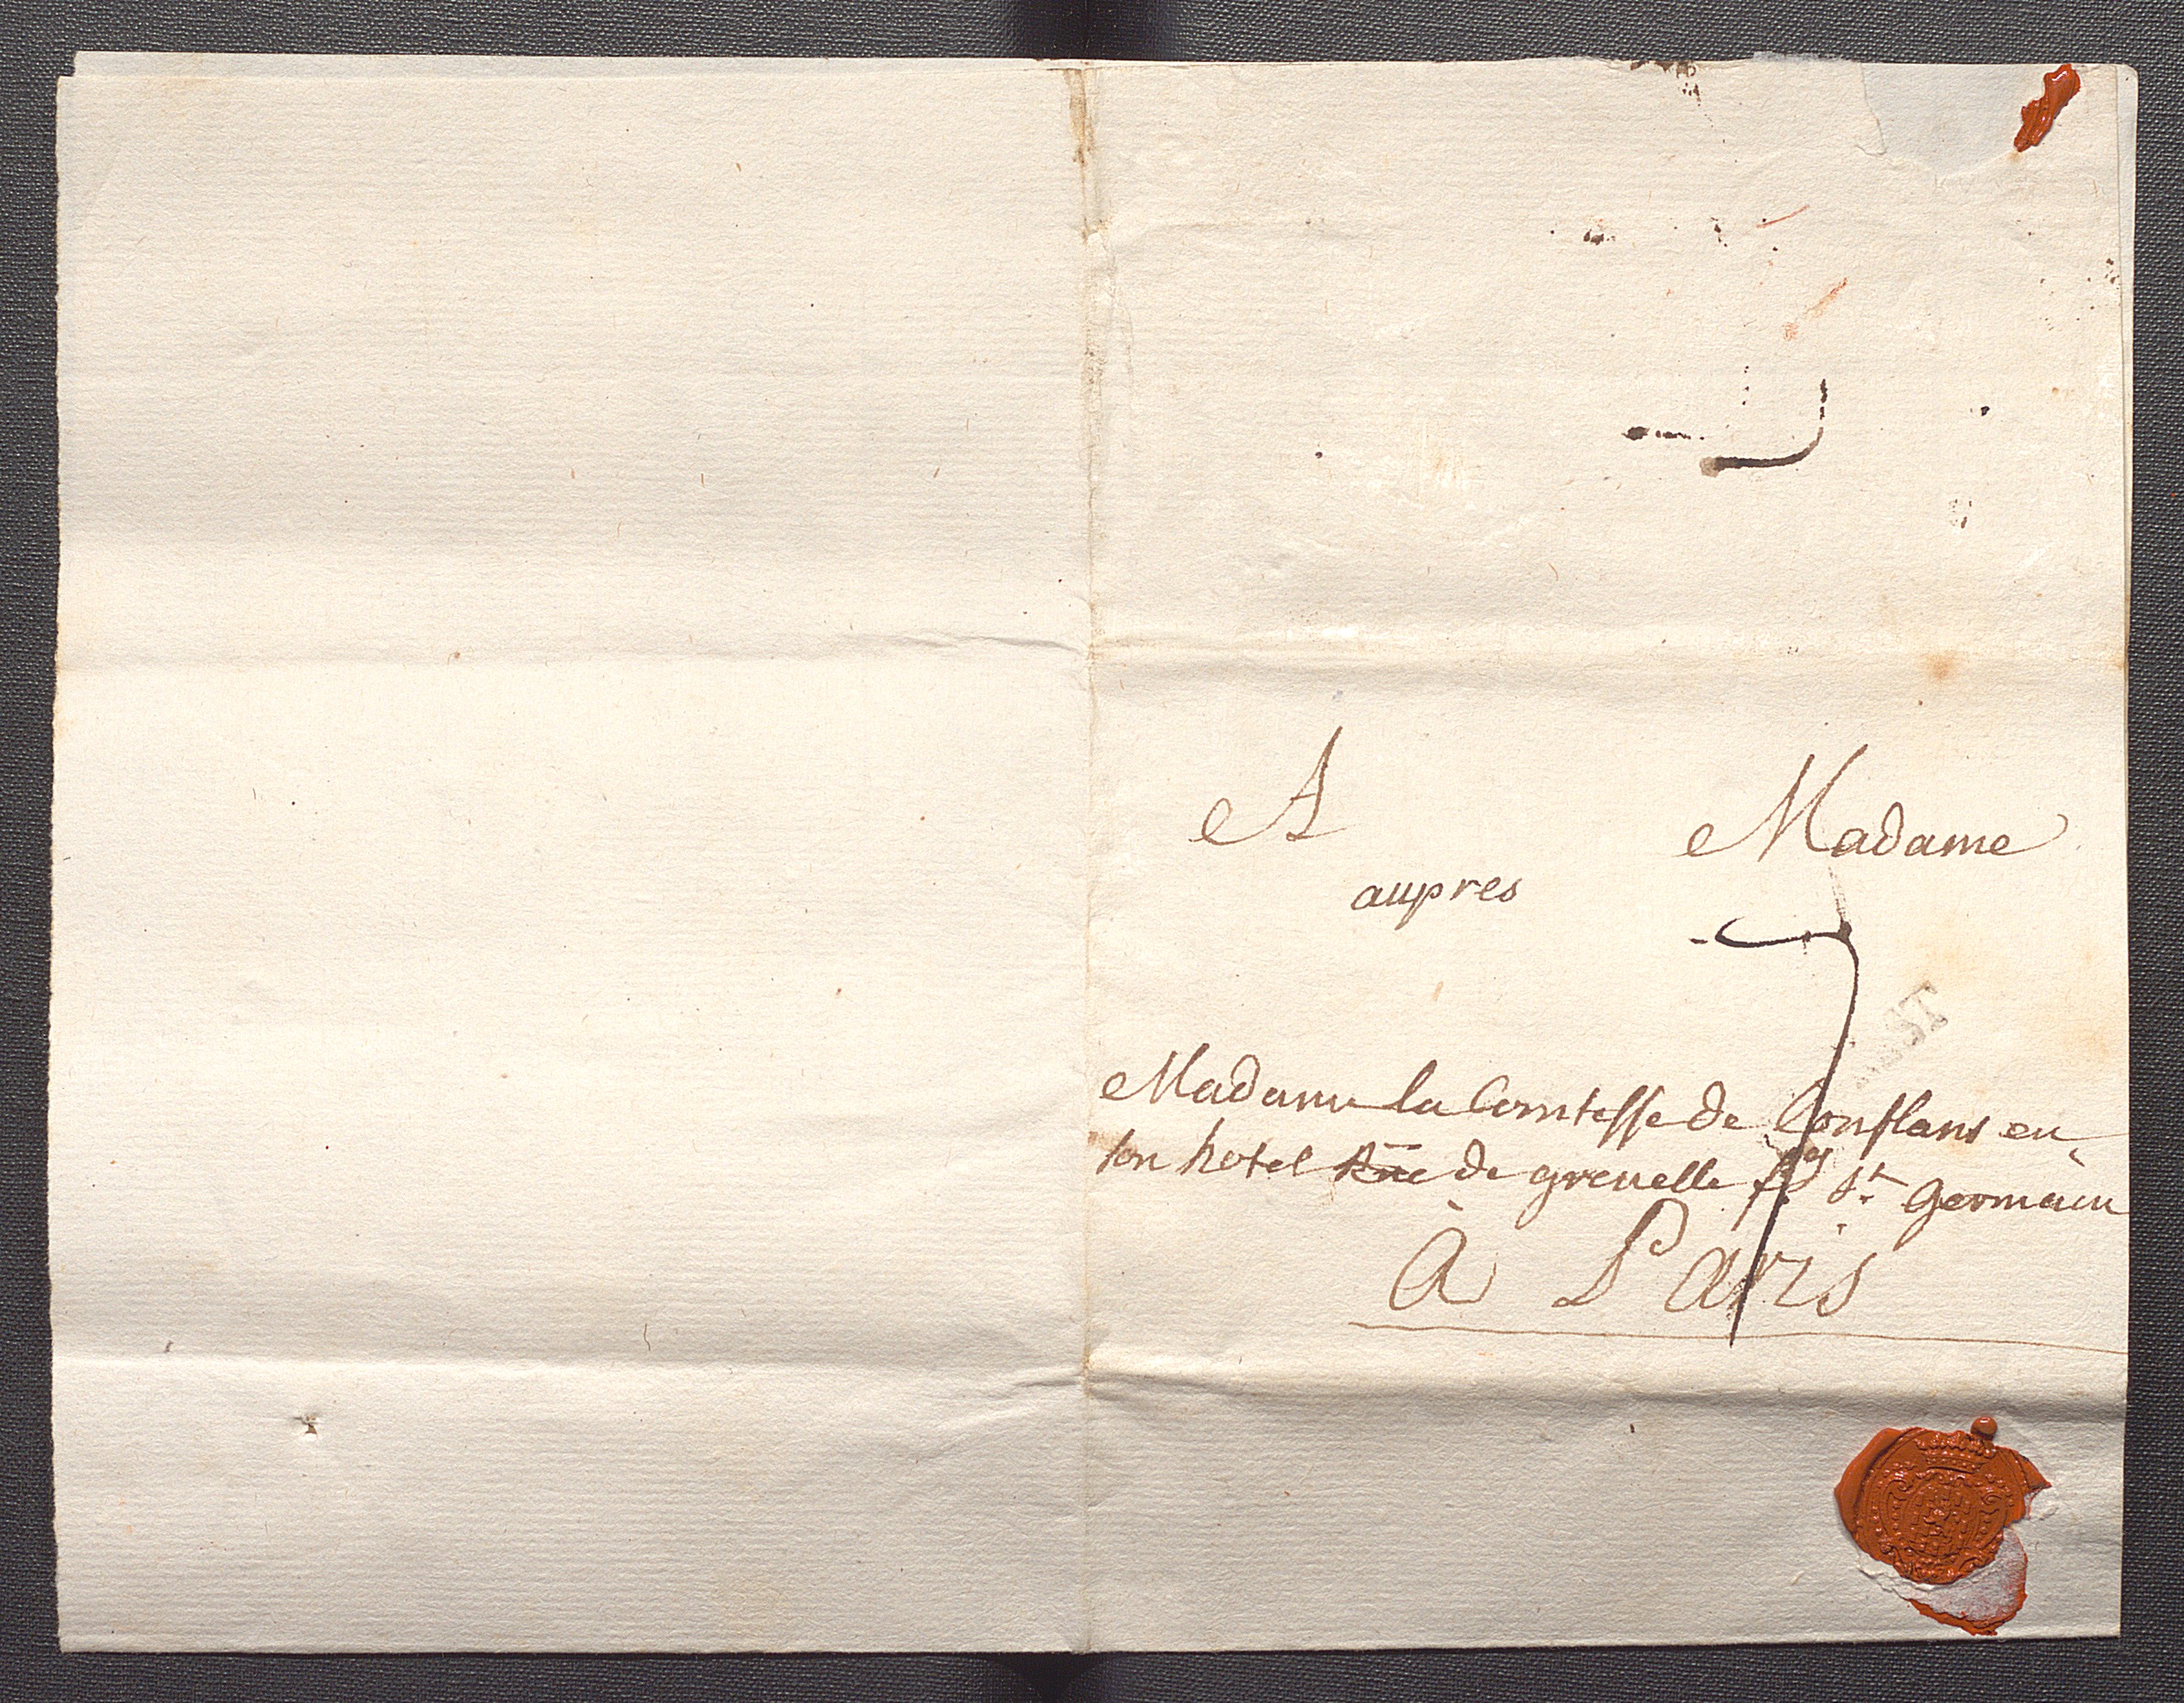 A Madame
aupres
Madame la Comtesse de Conflans en
son hotel Rüe de grenelle fbg St. germain
à Paris